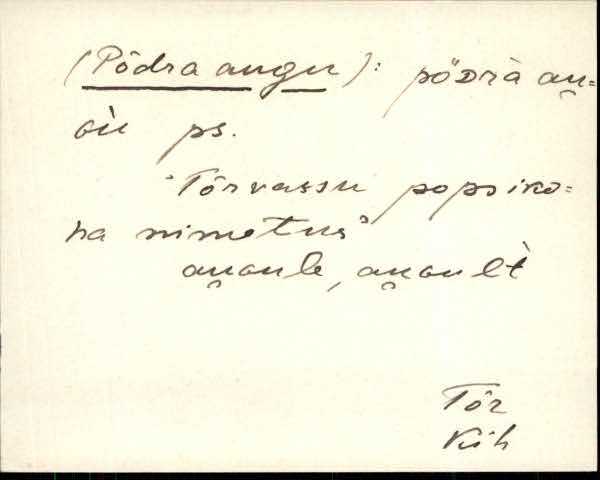 (Põdra augu): põᴅrà au̯-
ɢù ps.
"Tõrvassu popsiko-
ha nimetus"
au̯ɢule, au̯ɢult̀
Tõr
Krk